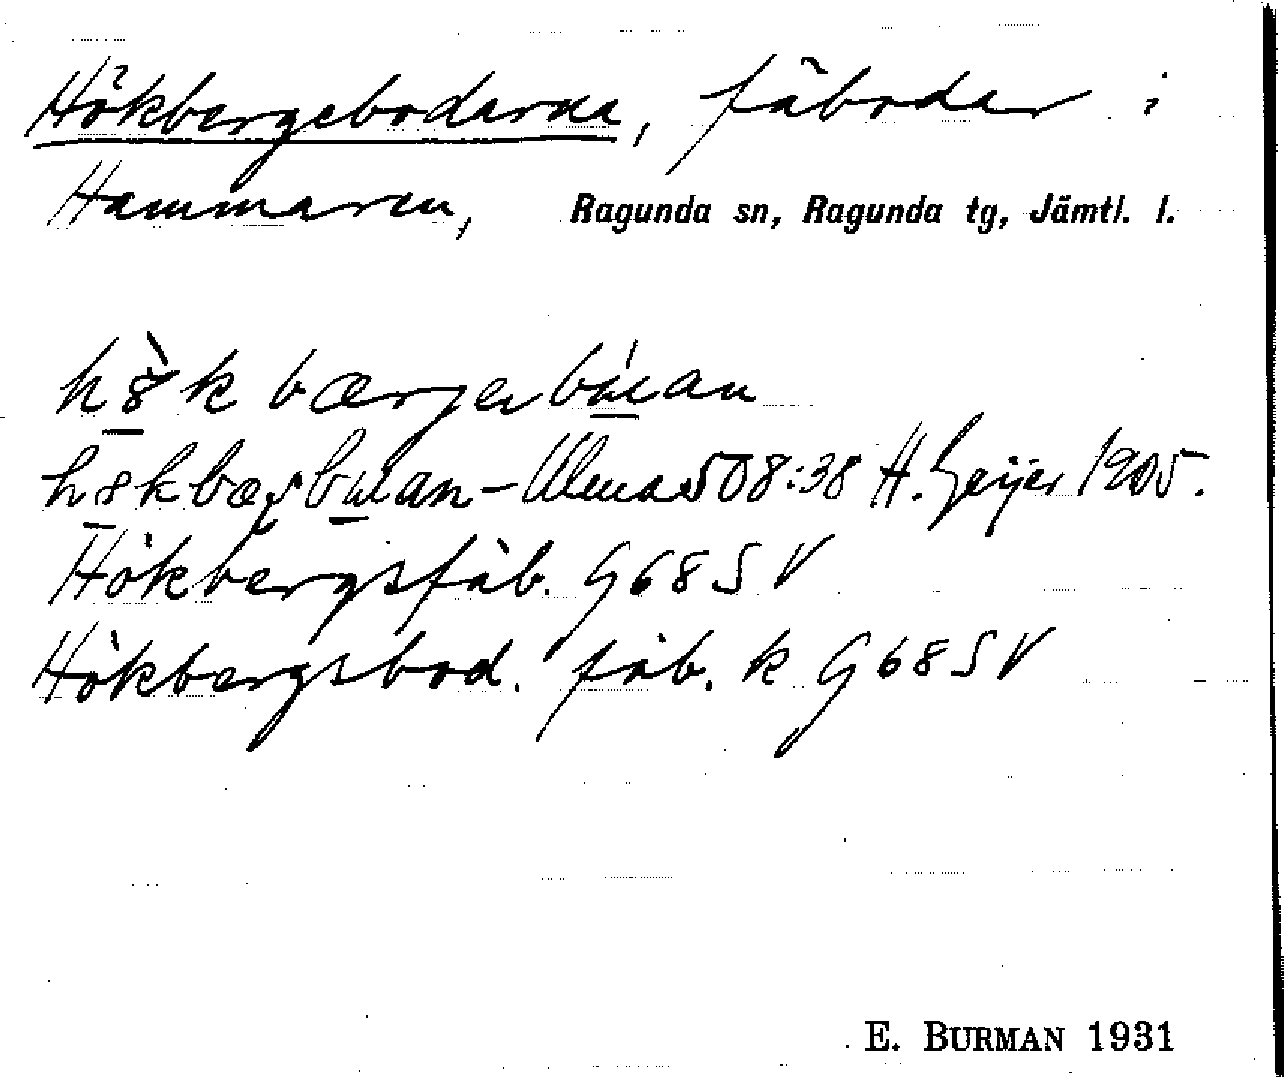 Hökbergebodarna, fäbodar i
Hammaren, Ragunda sn, Ragunda tg, Jämtl. l.
h8̀k bærger búan
- Ulma 508:38 H. Geijer 1905.
Hökbergsfäb. G68SV
Hökbergsbod. fäb. k G68SV
E. BURMAN 1931